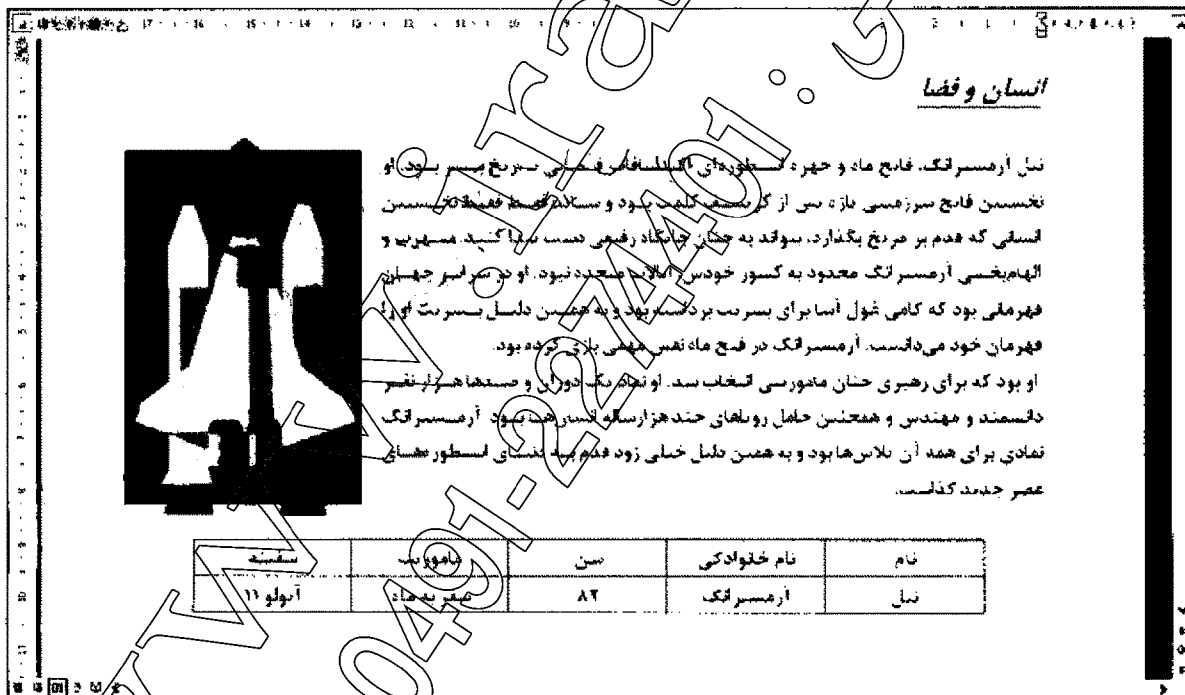 انسان و فضا
نیل آرمسترانگ، فاتح ماه و چهره اسطوره‌ای فضایی تاریخ بشر بود. او
نخستین فاتح سرزمینی تازه پس از کریستف کلمب بود و نخستین
انسانی که قدم بر مریخ بگذارد، بتواند به چنان جایگاه رفیعی دست پیدا کند. شهرت و
الهام‌بخشی آرمسترانگ محدود به کشور خودش ایالات متحده نبود. او در سراسر جهان
قهرمانی بود که گامی غول آسا برای بشریت برداشته بود و به همین دلیل بشریت او را
قهرمان خود می‌دانست. آرمسترانگ در فتح ماه نقش مهمی بازی کرده بود.
او بود که برای رهبری چنان ماموریتی انتخاب شد. او نماد یک دوران و صدها هزار نفر
دانشمند و مهندس و همچنین حامل رویاهای چند هزارساله بود. آرمسترانگ
نمادی برای همه آن تلاش‌ها بود و به همین دلیل خیلی زود قدم به دنیای اسطوره‌های
عصر جدید گذاشت.
نام نام خانوادگی سن ماموریت سفینه
نیل آرمسترانگ ۸۲ سفر به ماه آپولو ۱۱
0491-2274401